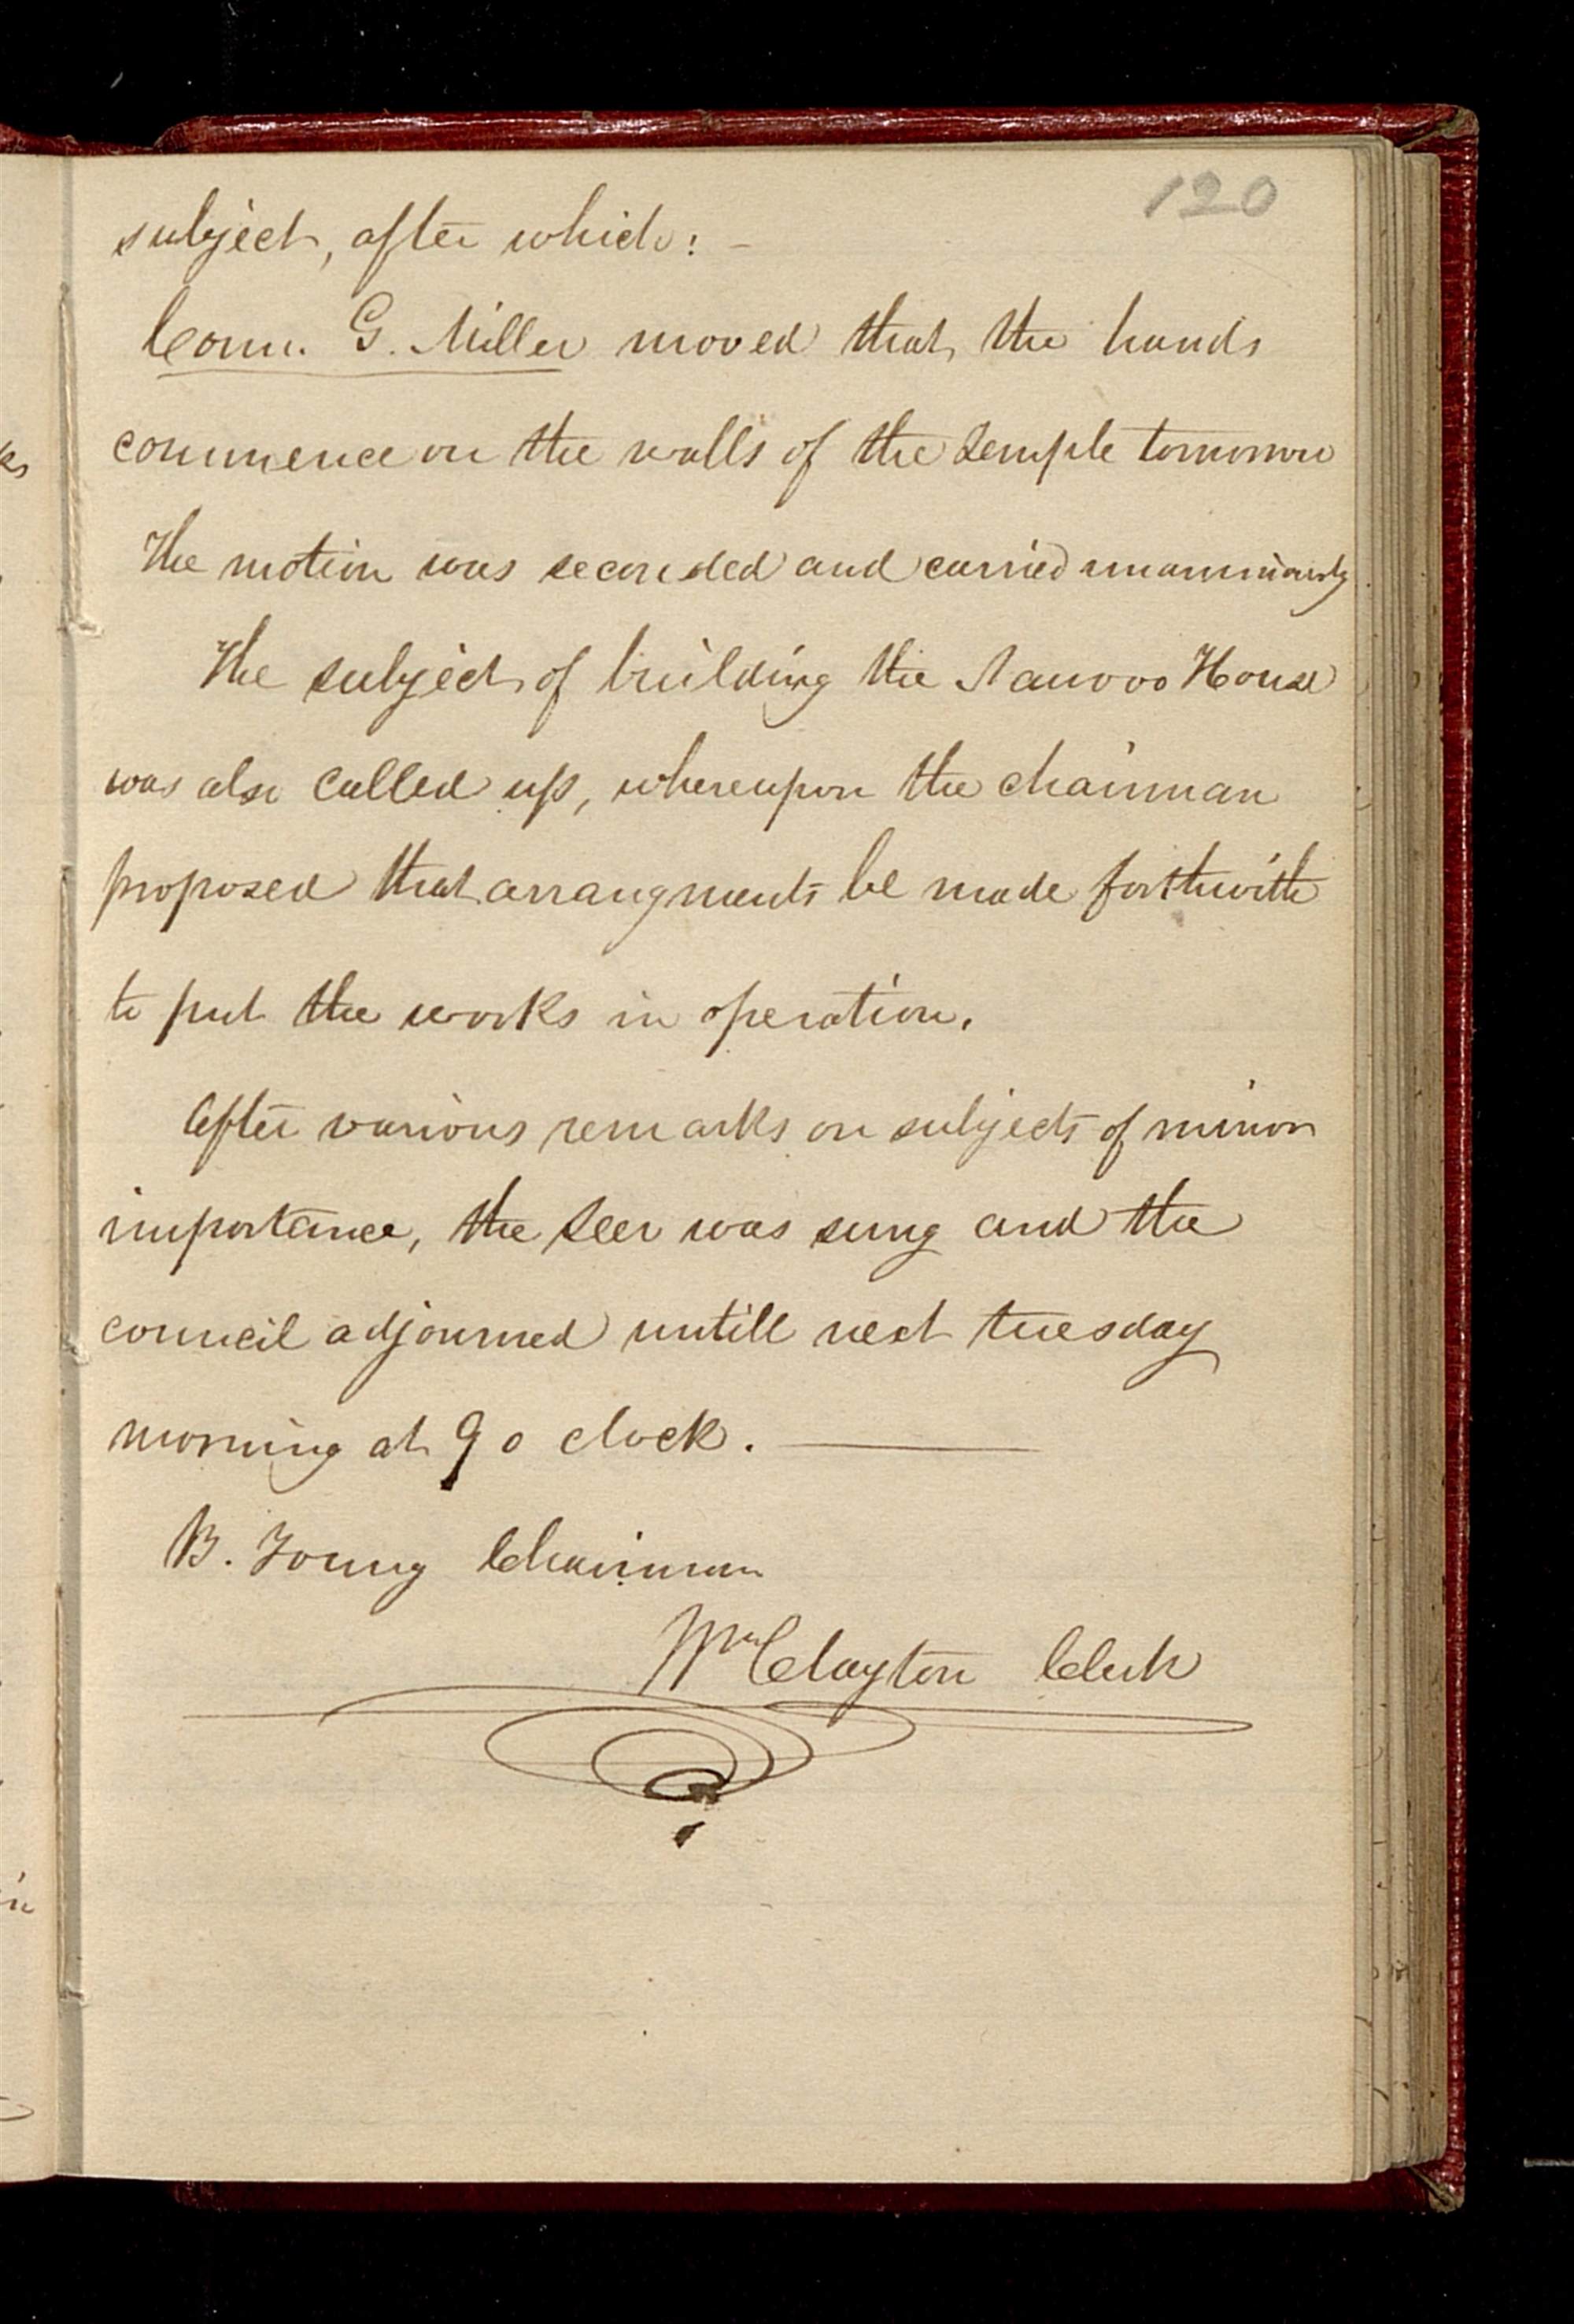 120
subject, after which: –
Coun. G. Miller moved that the hands
commence on the walls of the Temple tomorrow
The motion was seconded and carried unanimously
The subject of building the Nauvoo House
was also called up, whereupon the chairman
proposed that arrangments be made forthwith
to put the works in operation.
After various remarks on subjects of minor
importance, the Seer was sung and the
council adjourned untill next tuesday
morning at 9 o clock. —
B. Young Chairman
Wm Clayton Clerk